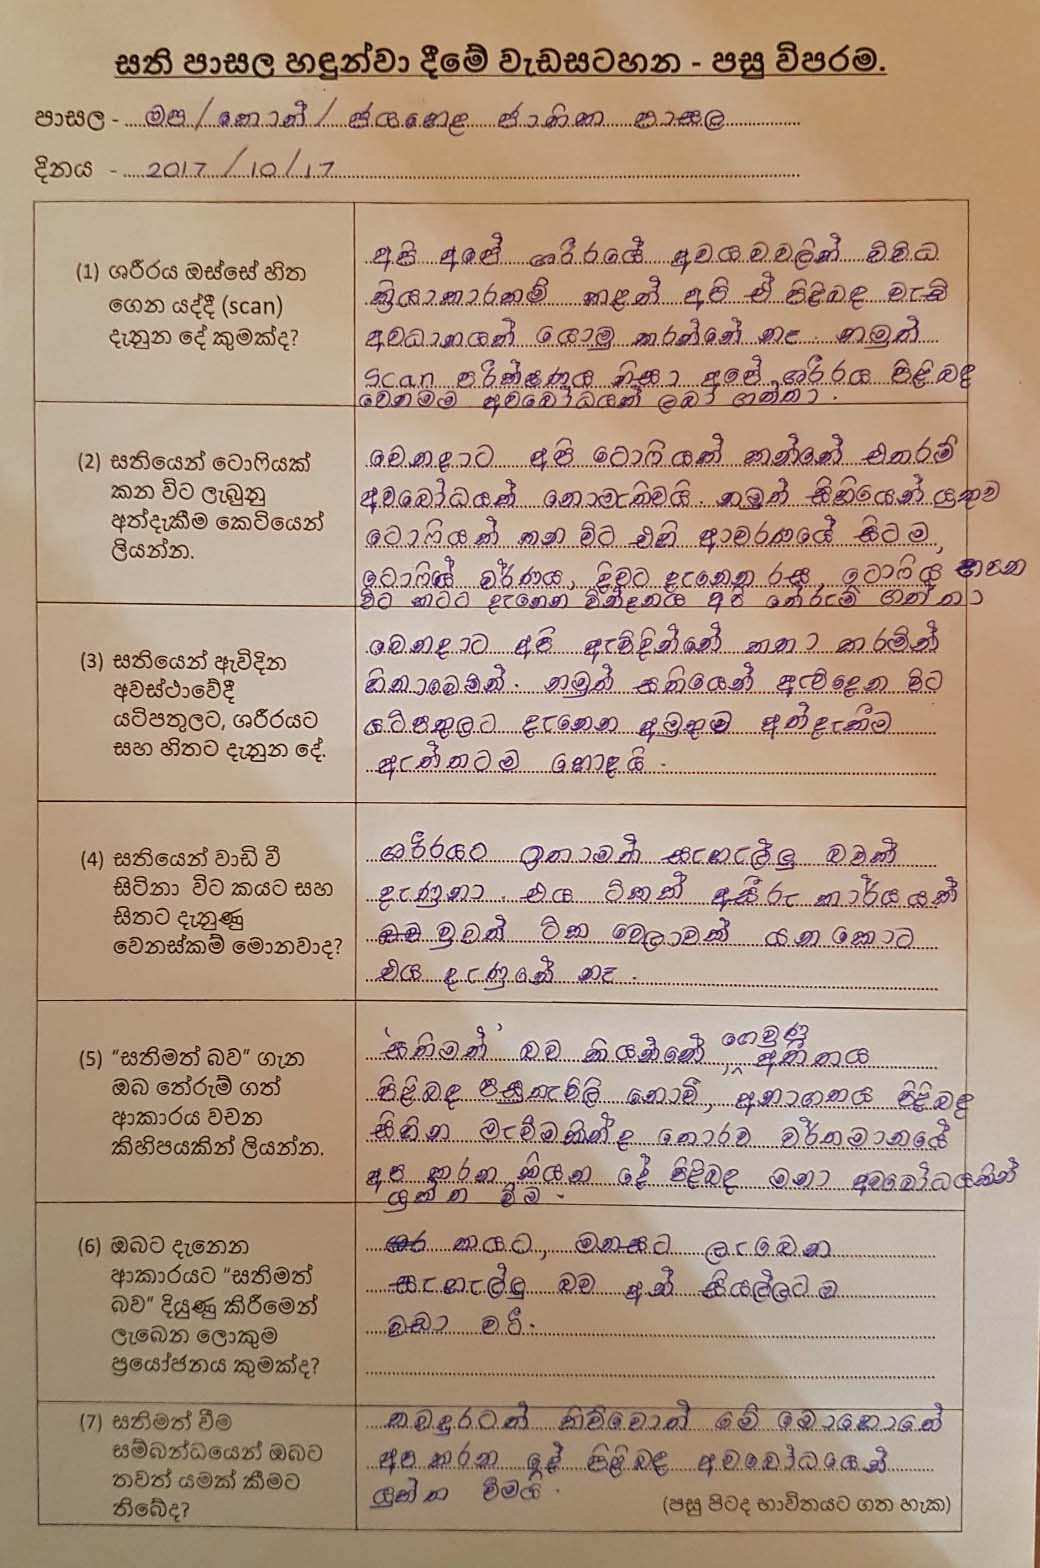 සති පාසල හඳුන්වා දීමේ වැඩසටහන - පසු විපරම.
පාසල - බප/හොන්/ ජයහෙළ ජාතික පාසල
දිනය - 2017/10/17
(1) ශරීරය ඔස්සේ හිත
ගෙන යද්දී (scan)
දැනුන දේ කුමක්ද?
අපි අපේ ශරීරයේ අවයවවලින් විවිධ
ක්‍රියාකාරකම් කළත් අපි ඒ පිළිබඳ වැඩි
අවධානයක් යොමු කරන්නේ නෑ. නමුත්
Scan පරීක්ෂණය නිසා අපේ ශරීරය පිළිබඳ
වෙනමම අවබෝධයක් ලබා ගත්තා.
(2) සතියෙන් ටොෆියක්
කන විට ලැබුනු
අත්දැකීම කෙටියෙන්
ලියන්න.
වෙනදාට අපි ටොෆියක් කන්නේ එතරම්
අවබෝධයක් නොමැතිවයි. නමුත් සිහියෙන් යුතුව
ටොෆියක් කන විට එහි ආවරණයේ සිටම,
ටොෆියේ වර්ණය, දිවට දැනෙන රස, ටොෆිය කපන
විට කටට දැනෙන වින්දනය අපි තේරුම් ගත්තා
(3) සතියෙන් ඇවිදින
අවස්ථාවේදී
යටිපතුලට, ශරීරයට
සහ හිතට දැනුන දේ.
වෙනදාට අපි ඇවිදින්නේ කතා කරමින්
හිනාවෙමින්. නමුත් සතියෙන් ඇවිදෙන විට
යටිපතුලට දැනෙන අමුතුම අත්දැකීම
ඇත්තටම හොඳයි.
(4) සතියෙන් වාඩි වී
සිටිනා විට කයට සහ
සිතට දැනුණු
වෙනස්කම් මොනවාද?
ශරීරයට ඉතාමත් සැහැල්ලු බවක්
දැණුනා. එය ටිකක් අසීරු කාර්යයක්
වුවත් ටික වෙලාවක් යනකොට
එය දැණුනේ නෑ.
(5) "සතිමත් බව" ගැන
ඔබ තේරුම් ගත්
ආකාරය වචන
කිහිපයකින් ලියන්න.
'සතිමත්' බව කියන්නේ, ගෙවුණු අතීතය
පිළිබඳ පසුතැවිලි නොවී, අනාගතය පිළිබඳ
සිහින මැවීමකින්ද තොරව වර්තමානයේ
අප කරන කියන දේ පිළිබඳ මනා අවබෝධයකින්
යුක්ත වීම.
(6) ඔබට දැනෙන
ආකාරයට "සතිමත්
බව" දියුණු කිරීමෙන්
ලැබෙන ලොකුම
ප්‍රයෝජනය කුමක්ද?
කයට, මනසට ලැබෙන
සැහැල්ලු බව අන් සියල්ලටම
වඩා වටී.
(7) සතිමත් වීම
සම්බන්ධයෙන් ඔබට
තවත් යමක් කීමට
තිබේද?
කවදුරටත් කිව්වොත් මේ මොහොතේ
අප කරන දේ පිළිබඳ අවබෝධයෙන්
යුක්ත වීමයි.
(පසු පිටද භාවිතයට ගත හැක)